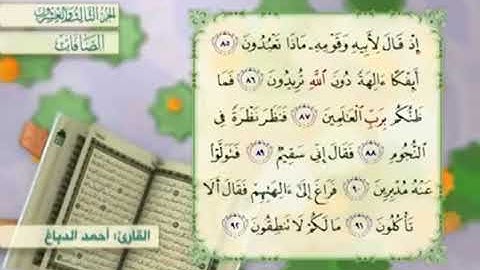 الجزء الثالث والعشرون
الصافات
إِذْ قَالَ لِأَبِيهِ وَقَوْمِهِۦ مَاذَا تَعْبُدُونَ ٨٥
أَئِفْكًا ءَالِهَةً دُونَ ٱللَّهِ تُرِيدُونَ ٨٦ فَمَا
ظَنُّكُم بِرَبِّ ٱلْعَٰلَمِينَ ٨٧ فَنَظَرَ نَظْرَةً فِى
ٱلنُّجُومِ ٨٨ فَقَالَ إِنِّى سَقِيمٌ ٨٩ فَتَوَلَّوْا۟
عَنْهُ مُدْبِرِينَ ٩٠ فَرَاغَ إِلَىٰٓ ءَالِهَتِهِمْ فَقَالَ أَلَا
تَأْكُلُونَ ٩١ مَا لَكُمْ لَا تَنطِقُونَ ٩٢
القارئ: أحمد الدباغ